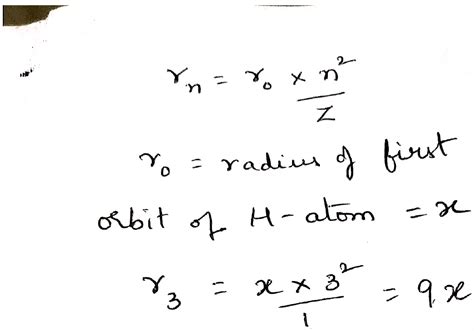 rₙ = r₀ × n²/Z
r₀ = radius of first
orbit of H-atom = x
r₃ = x × 3²/1 = 9x